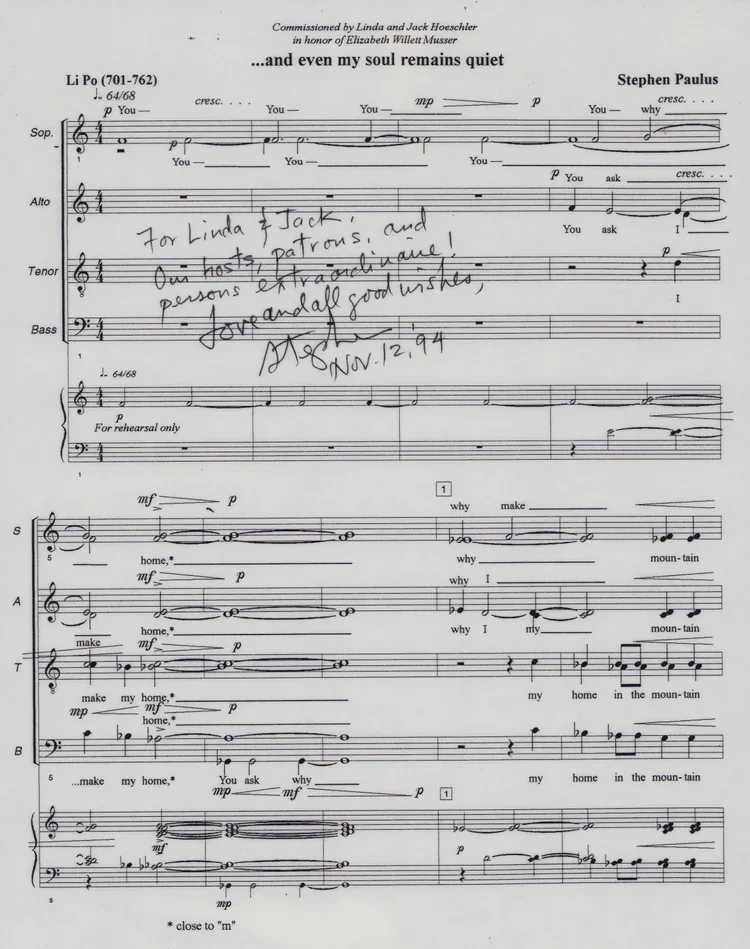 Commissioned by Linda and Jack Hoeschler
in honor of Elizabeth Willett Musser
...and even my soul remains quiet
Li Po (701-762) Stephen Paulus
♩. 64/68
p You — cresc. . . . . You — You — mp p You — why cresc. . . . .
Sop.
p
1 You — You — You —
p You ask cresc. . . . .
Alto
You ask I
For Linda & Jack,
Our hosts, patrons, and
persons extraordinaire!
Love and all good wishes,
Stephen
Nov. 12, '94
Tenor p
8 I
Bass
1
♩. 64/68
p
For rehearsal only
1
mf p 1 why make
S
5 home,* why moun-tain
mf p why I
A
home,* why I my moun-tain
make mf p
T
8 make my home,* my home in the moun-tain
mp mf p
home,*
B
5 ...make my home,* You ask why my home in the moun-tain
mp mf p 1
mf p
5 mp
* close to "m"